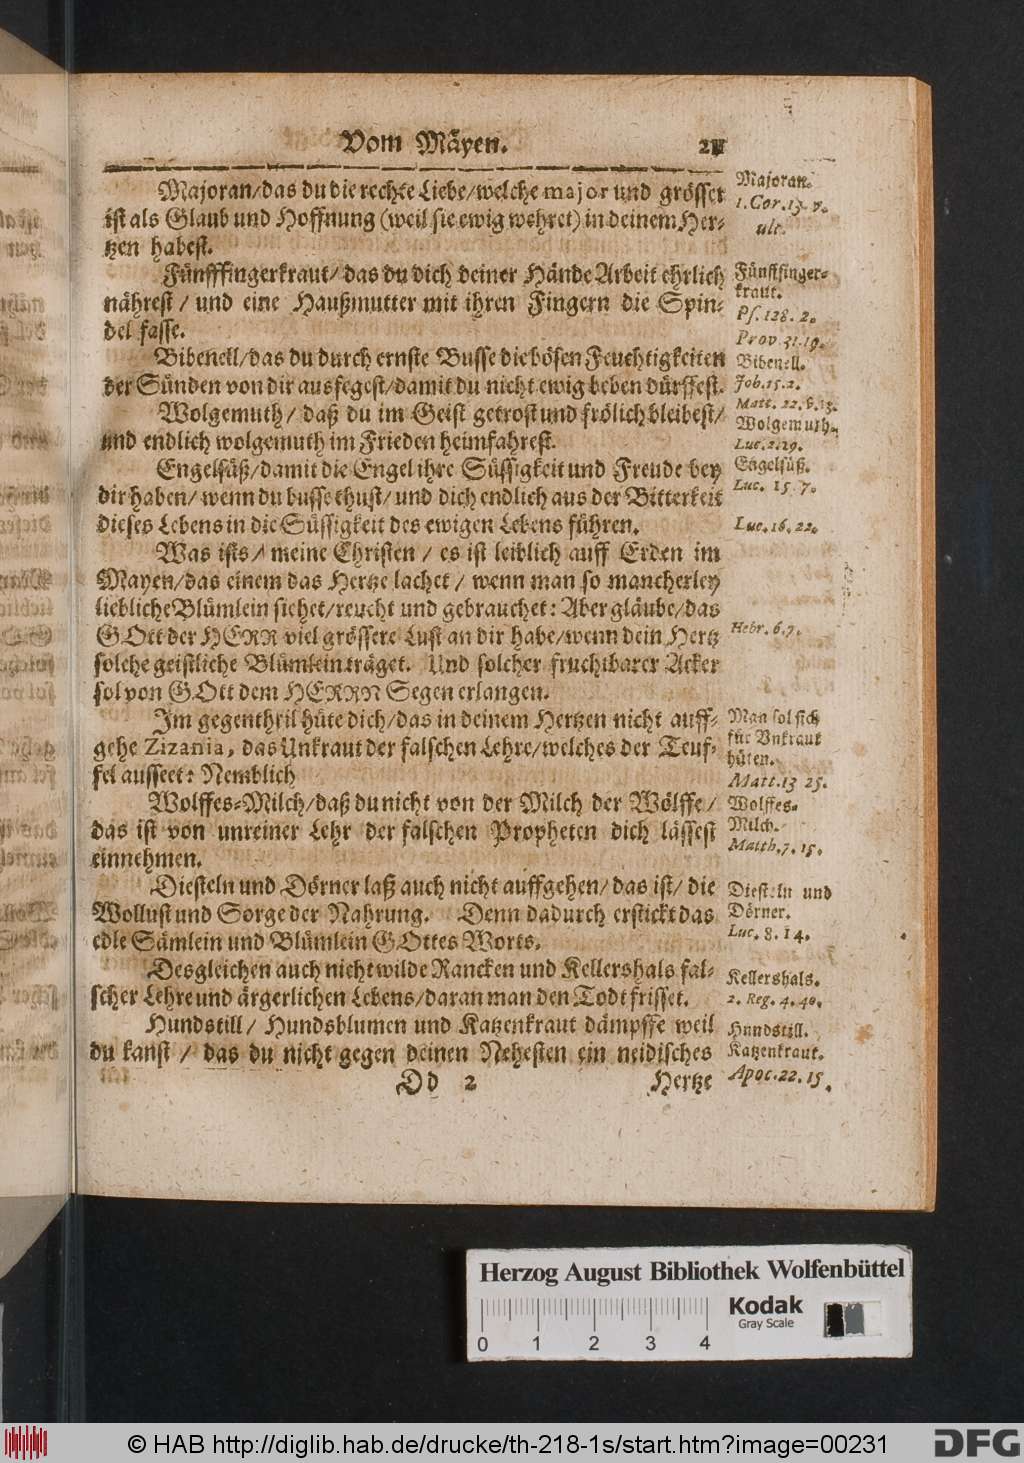 Vom Mäyen. 211
Majoran/das du die rechte Liebe/welche major und grösser
ist als Glaub und Hoffnung (weil sie ewig wehret) in deinem Her-
tzen habest.
Fünfffingerkraut/das du dich deiner Hände Arbeit ehrlich
nährest / und eine Haußmutter mit ihren Fingern die Spin-
del fasse.
Bibenell/das du durch ernste Busse die bösen Feuchtigkeiten
der Sünden von dir ausfegest/damit du nicht ewig beben dürffest.
Wolgemuth/ daß du im Geist getrost und frölich bleibest/
und endlich wolgemuth im Frieden heimfahrest.
Engelsüß/damit die Engel ihre Süssigkeit und Freude bey
dir haben/ wenn du busse thust/ und dich endlich aus der Bitterkeit
dieses Lebens in die Süssigkeit des ewigen Lebens führen.
Was ists/ meine Christen / es ist leiblich auff Erden im
Mayen/das einem das Hertze lachet / wenn man so mancherley
liebliche Blümlein siehet/reucht und gebrauchet: Aber gläube/das
GOtt der HERR viel grössere Lust an dir habe/wenn dein Hertz
solche geistliche Blümlein träget. Und solcher fruchtbarer Acker
sol von GOtt dem HERRN Segen erlangen.
Im gegentheil hüte dich/das in deinem Hertzen nicht auff-
gehe Zizania, das Unkraut der falschen Lehre/welches der Teuf-
felausseet: Nemblich
Wolffes-Milch/daß du nicht von der Milch der Wölffe/
das ist von unreiner Lehr der falschen Propheten dich lässest
einnehmen.
Diesteln und Dörner laß auch nicht auffgehen/das ist/ die
Wollust und Sorge der Nahrung. Denn dadurch erstickt das
edle Sämlein und Blümlein GOttes Worts.
Desgleichen auch nicht wilde Rancken und Kellershals fal-
scher Lehre und ärgerlichen Lebens/daran man den Todt frisset.
Hundstill/ Hundsblumen und Katzenkraut dämpffe weil
du kanst / das du nicht gegen deinen Nehesten ein neidisches
Dd 2 Hertze
Majoran.
1. Cor. 13. v.
ult.
Fünffinger-
kraut.
Ps. 128. 2.
Prov. 31. 19.
Bibenell.
Job. 15. 2.
Matt. 22. 8. 13.
Wolgemuth.
Luc. 2. 29.
Engelsüß.
Luc. 15. 7.
Luc. 16. 22.
Hebr. 6. 7.
Man sol sich
für Vnkraut
hüten.
Matt. 13 25.
Wolffes-
Milch.
Matth. 7. 15.
Diesteln und
Dörner.
Luc. 8. 14.
Kellershals.
2. Reg. 4. 40.
Hundstill.
Katzenkraut.
Apoc. 22. 15.
Herzog August Bibliothek Wolfenbüttel
Kodak
Gray Scale
0 1 2 3 4
© HAB http://diglib.hab.de/drucke/th-218-1s/start.htm?image=00231
DFG